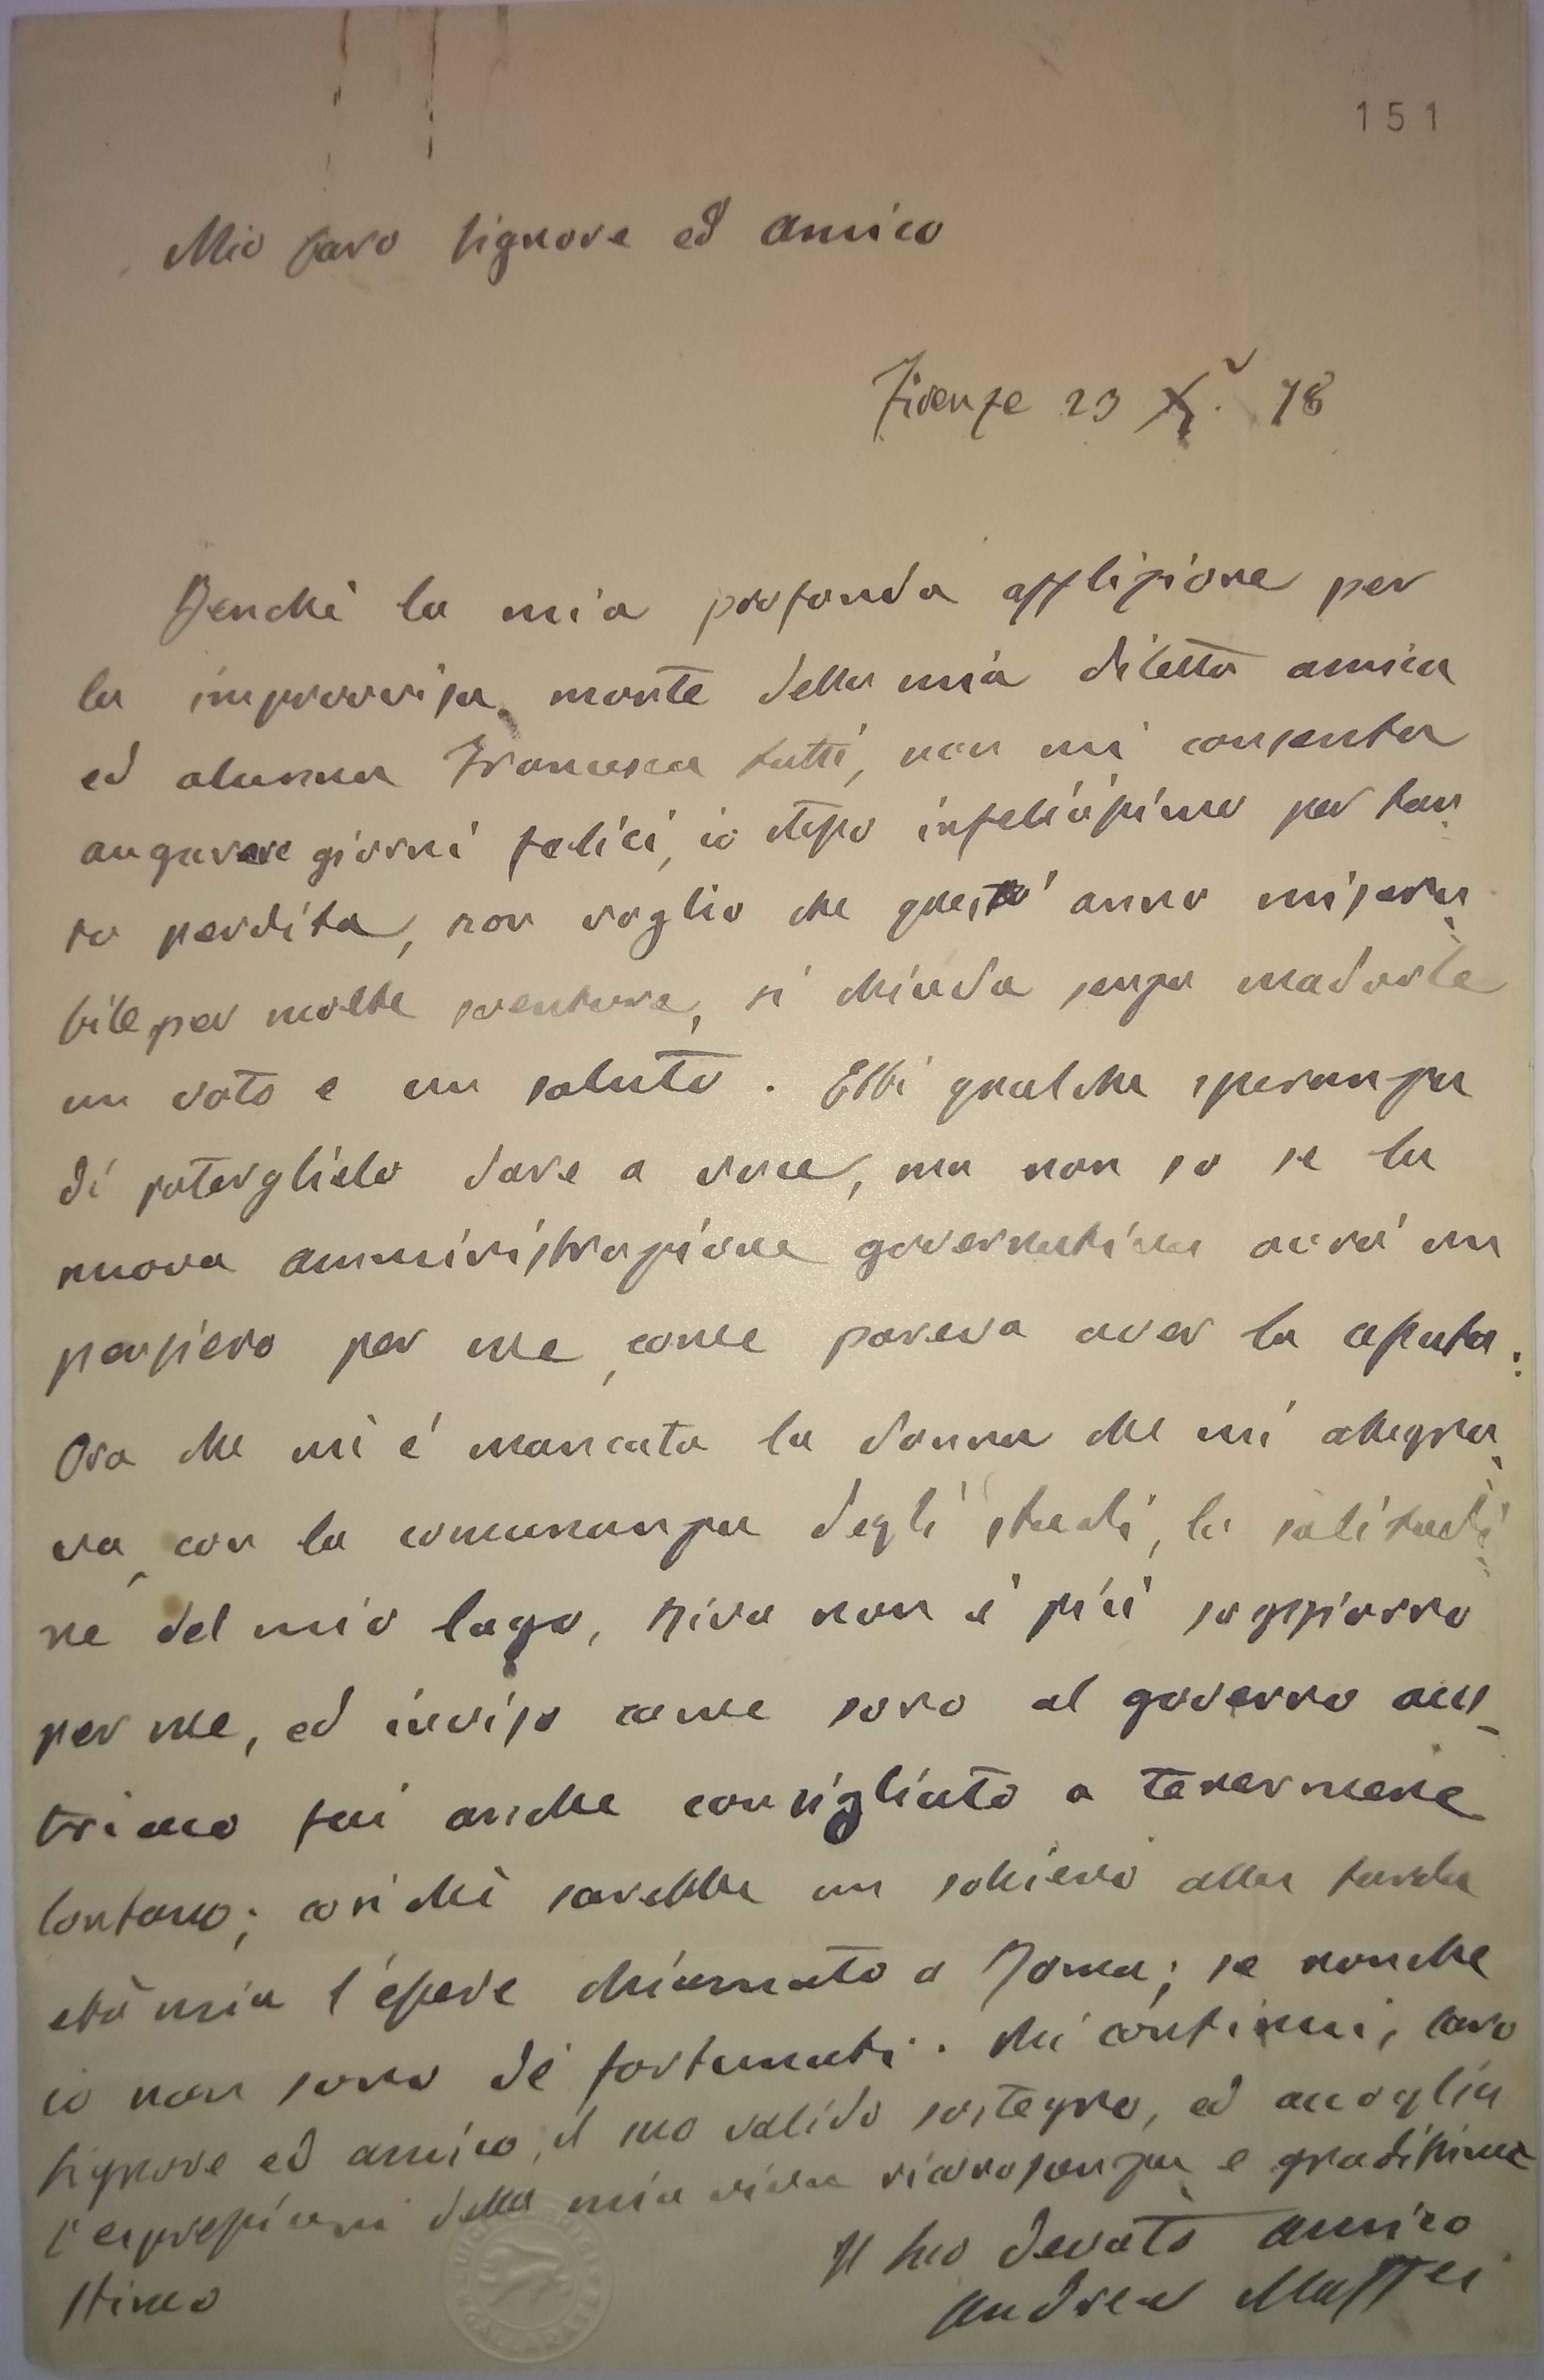 151
Mio Caro Signore ed Amico
Firenze 23 X. 78
Benchè la mia profonda afflizione per
la improvvisa morte della mia diletta amica
ed alunna Francesca Lutti, non mi consenta
augurare giorni felici, io stesso infelicissimo per tan
ta perdita, non voglio che quest' anno misera
bile per molte sventure, si chiuda senza mandarle
un voto e un saluto. Ebbi qualche speranza
di poterglielo dare a voce, ma non so se la
nuova amministrazione governativa avrà un
pensiero per me, come pareva aver la caduta.
Ora che mi è mancata la donna che mi allegra
va, con la comunanza degli studi, la solitudi
ne del mio lago, Riva non è più soggiorno
per me, ed inviso come sono al governo aus-
triaco fui anche consigliato a tenermene
lontano; così chè sarebbe un sollievo alla tarda
età mia l'essere chiamato a Roma; se nonche
io non sono de' fortunati. Mi continui, caro
Signore ed amico, il suo valido sostegno, ed accolga
l'espressioni della mia viva riconoscenza e
stima
Il suo devoto amico
Andrea Maffei